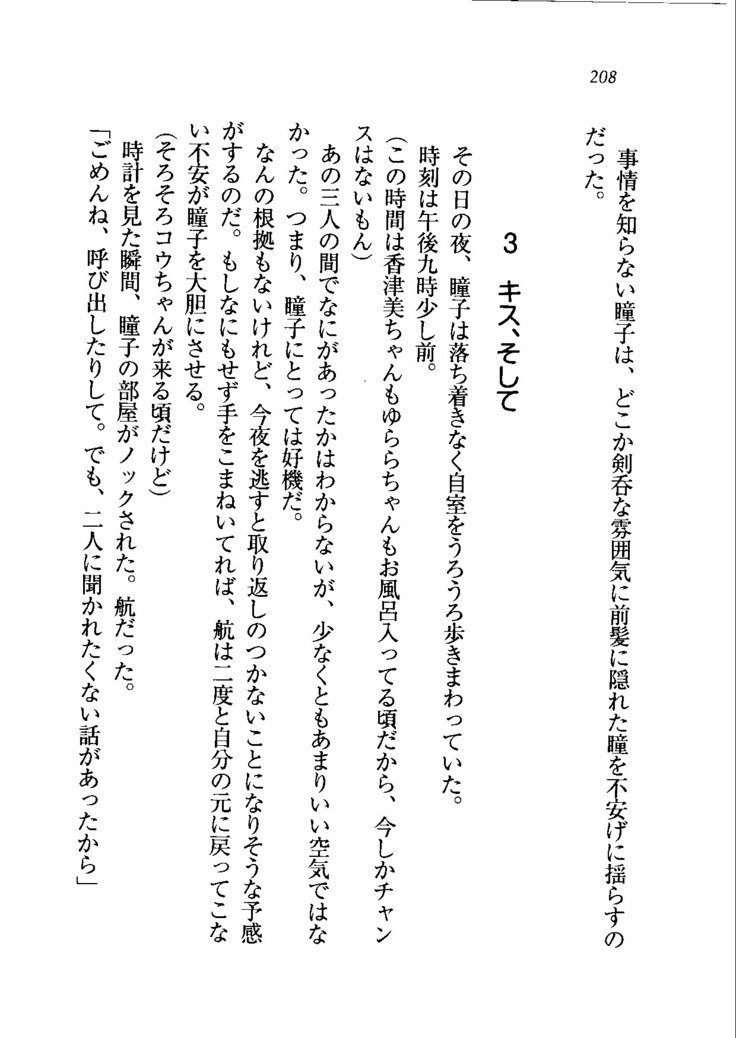 208
事情を知らない瞳子は、どこか剣呑な雰囲気に前髪に隠れた瞳を不安げに揺らすの
だった。
3 キス、そして
その日の夜、瞳子は落ち着きなく自室をうろうろ歩きまわっていた。
時刻は午後九時少し前。
(この時間は香津美ちゃんもゆららちゃんもお風呂入ってる頃だから、今しかチャン
スはないもん)
あの三人の間でなにがあったかはわからないが、少なくともあまりいい空気ではな
かった。つまり、瞳子にとっては好機だ。
なんの根拠もないけれど、今夜を逃すと取り返しのつかないことになりそうな予感
がするのだ。もしなにもせず手をこまねいてれば、航は二度と自分の元に戻ってこな
い不安が瞳子を大胆にさせる。
(そろそろコウちゃんが来る頃だけど)
時計を見た瞬間、瞳子の部屋がノックされた。航だった。
「ごめんね、呼び出したりして。でも、二人に聞かれたくない話があったから」